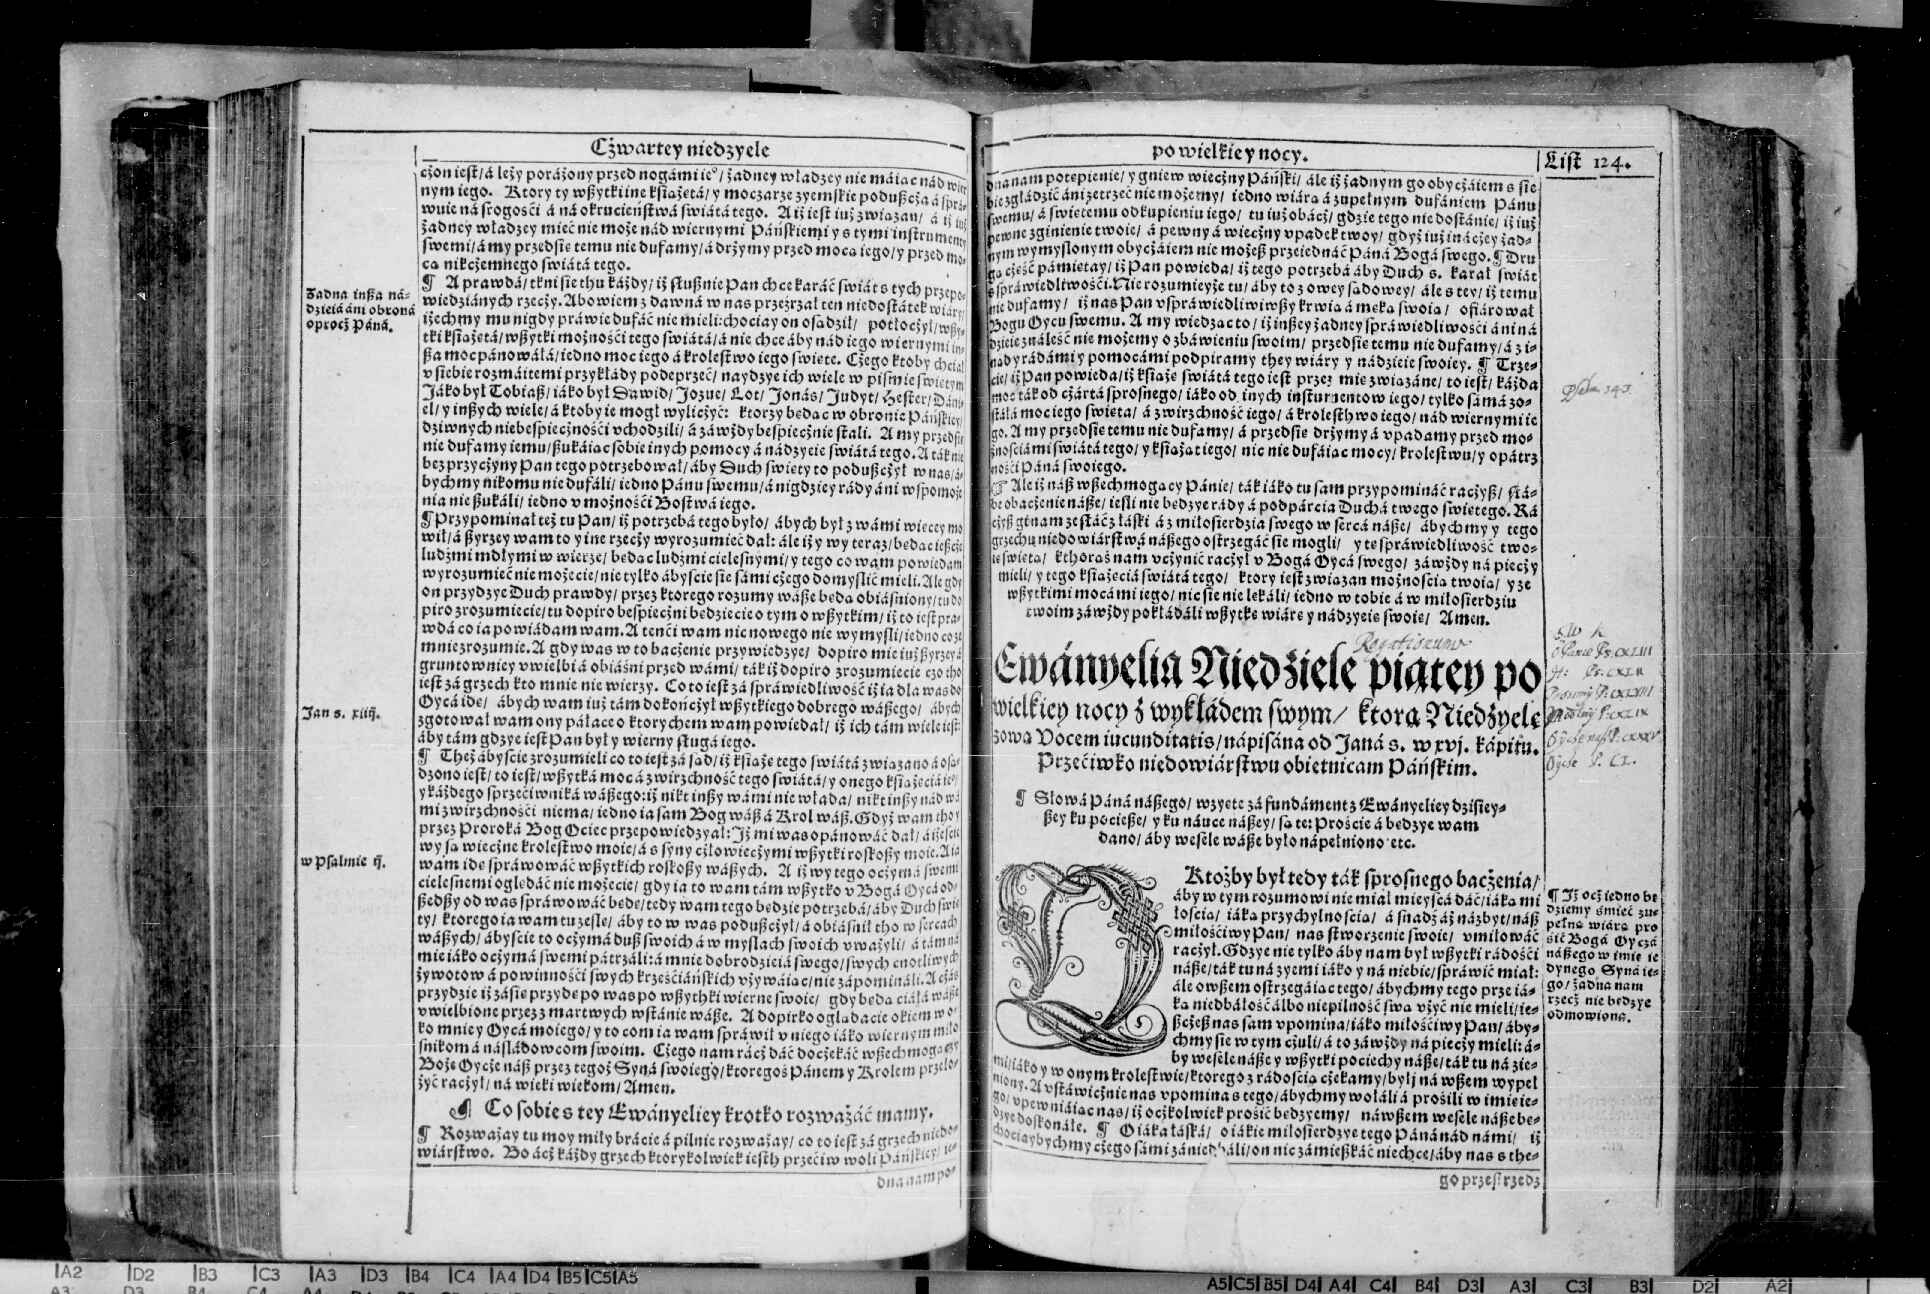 Cżwartey niedzyele
cżon iest/ á leży poráżony przed nogámi ie°/ żadney władzey nie máiac nád wier
nym iego. Ktory ty wßytki ine ksiażetá/ y moczarze zyemskie podußcża á sprá-
wuie ná srogośći á ná okrucieństwá świátá tego. A iż iest iuż zwiazan/ á iż iuż
żadney władzey mieć nie może nád wiernymi Páńskiemi y s tymi instrumenty
swemi/ á my przedsie temu nie dufamy/ á drżymy przed moca iego/ y przed mo-
ca nikcżemnego świátá tego.
¶ A prawdá/ tkni sie thu káżdy/ iż słußnie Pan chce karáć świát s tych przepo-
wiedziánych rzecży. Abowiem z dawná w nas przeżrzał ten niedostátek wiáry/
iżechmy mu nigdy práwie dufáć nie mieli: chociay on osądził/ potłocżył/ wßy-
tki ksiażetá/ wßytki możnośći tego świátá/ á nie chce áby nád iego wiernymi in-
ßa moc pánowáłá/ iedno moc iego á krolestwo iego święte. Cżego ktoby chciał
v siebie rozmáitemi przykłády podeprzeć/ naydzye ich wiele w pismie świętym
Jáko był Tobiaß/ iáko był Dawid/ Jozue/ Lot/ Jonás/ Judyt/ Hester/ Dáni-
el/ y inßych wiele/ á ktoby ie mogł wylicżyć: ktorzy bedac w obronie Páńskiey/
dziwnych niebespiecżnośći vchodzili/ á záwżdy bespiecżnie stali. A my przedsie
nie dufamy iemu/ ßukáiac sobie inych pomocy á nádzyeie świátá tego. A ták nie
bez przycżyny Pan tego potrzebował/ áby Duch święty to podußcżył w nas/ á-
bychmy nikomu nie dufáli/ iedno Pánu swemu/ á nigdziey rády áni wspomoże
nia nie ßukáli/ iedno v możnośći Bostwá iego.
¶ Przypominał też tu Pan/ iż potrzebá tego było/ ábych był z wámi wiecey mo
wił/ á ßyrzey wam to y ine rzecży wyrozumieć dał: ále iż y wy teraz/ bedac ießcże
ludźmi mdłymi w wierze/ bedac ludźmi cielesnymi/ y tego co wam powiedam
wyrozumieć nie możecie/ nie tylko ábyscie sie sámi cżego domyslić mieli. Ale gdy
on przydzye Duch prawdy/ przez ktorego rozumy wáße beda obiáśniony/ tu do
piro zrozumiecie/ tu dopiro bespiecżni bedziecie o tym o wßytkim/ iż to iest pra-
wdá co ia powiádam wam. A tenći wam nic nowego nie wymysli/ iedno co ze
mnie zrozumie. A gdy was w to bacżenie przywiedzye/ dopiro mie iuż ßyrzey á
gruntowniey vwielbi á obiáśni przed wámi/ ták iż dopiro zrozumiecie czo tho
iest zá grzech kto mnie nie wierzy. Co to iest zá spráwiedliwość iż ia dla was do
Oycá ide/ ábych wam iuż tám dokońcżył wßytkiego dobrego wáßego/ ábych
zgotował wam ony páłace o ktorychem wam powiedał/ iż ich tám wiele iest:
áby tám gdzye iest Pan był y wierny sługá iego.
¶ Theż ábyscie zrozumieli co to iest zá sad/ iż ksiaże tego świátá zwiazano á osa-
dzono iest/ to iest/ wßytká moc á zwirzchność tego świátá/ y onego ksiażeciá ie°/
y káżdego sprzećiwniká wáßego: iż nikt inßy wámi nie włada/ nikt inßy nád wá
mi zwirzchnośći niema/ iedno ia sam Bog wáß á Krol wáß. Gdyż wam tho y
przez Proroká Bog Ociec przepowiedzyał: Iż mi was opánowáć dał/ á iżescie
wy sa wiecżne krolestwo moie/ á s syny cżłowiecżymi wßytki roskoßy moie. A ia
wam ide spráwowáć wßytkich roskoßy wáßych. A iż wy tego ocżymá swemi
cielesnemi oglédáć nie możecie/ gdy ia to wam tám wßytko v Bogá Oycá od-
ßedßy od was spráwowáć bede/ tedy wam tego bedzie potrzebá/ áby Duch świę
ty/ ktorego ia wam tu zesle/ áby to w was podußcżył/ á obiáśnił tho w sercach
wáßych/ ábyscie to ocżymá duß swoich á w myslach swoich vważyli/ á tám ná
mie iáko ocżymá swemi pátrzáli: á mnie dobrodzieiá swego/ swych cnotliwych
żywotow á powinnośći swych krześćiáńskich vżywáiac/ nie zápomináli. A cżás
przydzie iż zásie przyde po was po wßythki wierne swoie/ gdy beda ciáłá wáße
vwielbione przez z martwych wstánie wáße. A dopirko ogladacie okiem w o-
ko mniey Oycá moiego/ y to com ia wam spráwił v niego iáko wiernym miło
snikom á násládowcom swoim. Cżego nam rácż dáć docżekáć wßechmogacy
Boże Oycże náß przez tegoż Syná swoiego/ ktoregoś Pánem y Krolem przeło-
żyć racżył/ ná wieki wiekom/ Amen.
¶ Co sobie s tey Ewányeliey krotko rozważáć mamy.
¶ Rozważay tu moy miły brácie á pilnie rozważay/ co to iest zá grzech niedo-
wiárstwo. Bo ácż káżdy grzech ktorykolwiek iesth przećiw woli Páńskiey/ ie-
dna nam po-
Żadna inßa ná-
dzieiá áni obroná
oprocż Páná.
Jan s. xiiij.
w Psalmie ij.
po wielkiey nocy.
List 124.
dna nam potepienie/ y gniew wiecżny Páński/ ále iż żadnym go obycżáiem s sie
bie zgładzić áni zetrzeć nie możemy/ iedno wiára á zupełnym dufániem Pánu
swemu/ á świetemu odkupieniu iego/ tu iuż obácż/ gdzie tego nie dostánie/ iż iuż
pewne zginienie twoie/ á pewny á wiecżny vpadek twoy/ gdyż iuż inácżey żad-
nym wymyslonym obycżáiem nie możeß przeiednáć Páná Bogá swego. ¶ Dru
ga cżęść pámietay/ iż Pan powieda/ iż tego potrzebá áby Duch s. karał świát
s spráwiedliwośći. Nie rozumieyże tu/ áby to z owey sadowey/ ále s tey/ iż temu
nie dufamy/ iż nas Pan vspráwiedliwiwßy krwia á meka swoia/ ofiárował
Bogu Oycu swemu. A my wiedzac to/ iż inßey żadney spráwiedliwośći áni ná
dzieie ználeść nie możemy o zbáwieniu swoim/ przedsie temu nie dufamy/ á z i-
nády rádámi y pomocámi podpiramy they wiáry y nádzieie swoiey. ¶ Trze-
cie/ iż Pan powieda/ iż ksiaże świátá tego iest przez mie zwiazáne/ to iest/ káżda
moc ták od cżártá sprosnego/ iáko od inych instrumentow iego/ tylko sámá zo-
stáłá moc iego święta/ á zwirzchność iego/ á krolesthwo iego/ nád wiernymi ie
go. A my przedsie temu nie dufamy/ á przedsie drżymy á vpadamy przed mo-
żnośćiámi świátá tego/ y ksiażat iego/ nic nie dufáiac mocy/ krolestwu/ y opátrz
nośći Páná swoiego.
¶ Ale iż náß wßechmogacy Pánie/ ták iáko tu sam przypomináć racżyß/ słá-
be obacżenie náße/ iesli nie bedzye rády á podpárcia Duchá twego świętego. Rá
cżyß gi nam zesłáć z łáski á z miłosierdzia swego w sercá náße/ ábychmy y tego
grzechu niedowiárstwá náßego ostrzegáć sie mogli/ y te spráwiedliwość two-
ie święta/ kthoraś nam vcżynić racżył v Bogá Oycá swego/ záwżdy ná piecży
mieli/ y tego ksiażeciá świátá tego/ ktory iest zwiazan możnoscia twoia/ y ze
wßytkimi mocámi iego/ nic sie nie lekáli/ iedno w tobie á w miłosierdziu
twoim záwżdy pokłádáli wßytke wiáre y nádzyeie swoie/ Amen.
Ewányelia Niedżiele piątey po
wielkiey nocy z wykłádem swym/ ktora Niedżyelę
zowa Vocem iucunditatis/ nápisána od Janá s. w xvj. kápitu.
Przećiwko niedowiárstwu obietnicam Páńskim.
¶ Słowá Páná náßego/ wzyęte zá fundáment z Ewányeliey dzisiey-
ßey ku pocieße/ y ku náuce náßey/ sa te: Proście á bedzye wam
dano/ áby wesele wáße było nápełniono etc.
Ktożby był tedy ták sprosnego bacżenia/
áby w tym rozumowi nie miał mieyscá dáć/ iáka mi
łoscia/ iáka przychylnoscia/ á snadż áż názbyt/ náß
miłośćiwy Pan/ nas stworzenie swoie/ vmiłowáć
racżył. Gdzye nie tylko áby nam był wßytki rádośći
náße/ ták tu ná zyemi iáko y ná niebie/ spráwić miał:
ále owßem ostrzegáiac tego/ ábychmy tego prze iá-
ka niedbáłość álbo niepilność swa vżyć nie mieli/ ie-
ßcżeß nas sam vpomina/ iáko miłośćiwy Pan/ áby-
chmy sie w tym cżuli/ á to záwżdy ná piecży mieli: á-
by wesele náße y wßytki pociechy náße/ ták tu ná zie-
mi/ iáko y w onym krolestwie/ ktorego z rádoscia cżekamy/ były ná wßem wypeł
niony. A vstáwicżnie nas vpomina s tego/ ábychmy wołáli á prosili w imię ie-
go/ vpewniáiac nas/ iż ocżkolwiek prosić bedzyemy/ náwßem wesele náße be-
dzye doskonáłe. ¶ O iáka łáská/ o iákie miłosierdzye tego Páná nád námi/ iż
chociaybychmy cżego sámi zániedbáli/ on nic zámießkáć niechce/ áby nas s the-
go przestrzedz
Rogationum
Psalm 143
¶ Iż ocż iedno be
dziemy śmieć zu-
pełna wiára pro
sić Bogá Oycá
náßego w imię ie
dynego Syná ie-
go/ żadna nam
rzecż nie bedzye
odmowiona.
A2 D2 B3 C3 A3 D3 B4 C4 A4 D4 B5 C5 A5
A5 C5 B5 D4 A4 C4 B4 D3 A3 C3 B3 D2 A2